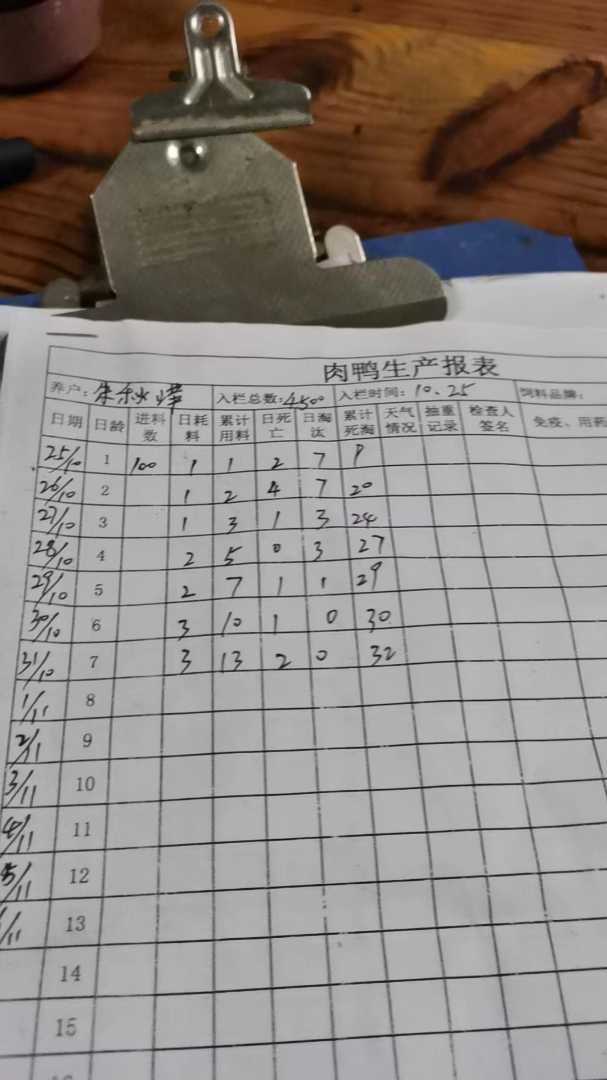 肉鸭生产报表
养户: 朱秋 入栏总数: 4500 入栏时间: 10.25 饲料品牌:
日期 日龄 进料数 日耗料 累计用料 日死亡 日淘汰 累计死淘 天气情况 抽重记录 检查人签名 免疫、用药
25/10 1 100 1 1 2 7 9
26/10 2 1 2 4 7 20
27/10 3 1 3 1 3 24
28/10 4 2 5 0 3 27
29/10 5 2 7 1 1 29
30/10 6 3 10 1 0 30
31/10 7 3 13 2 0 32
1/11 8
2/11 9
3/11 10
4/11 11
5/11 12
/11 13
14
15